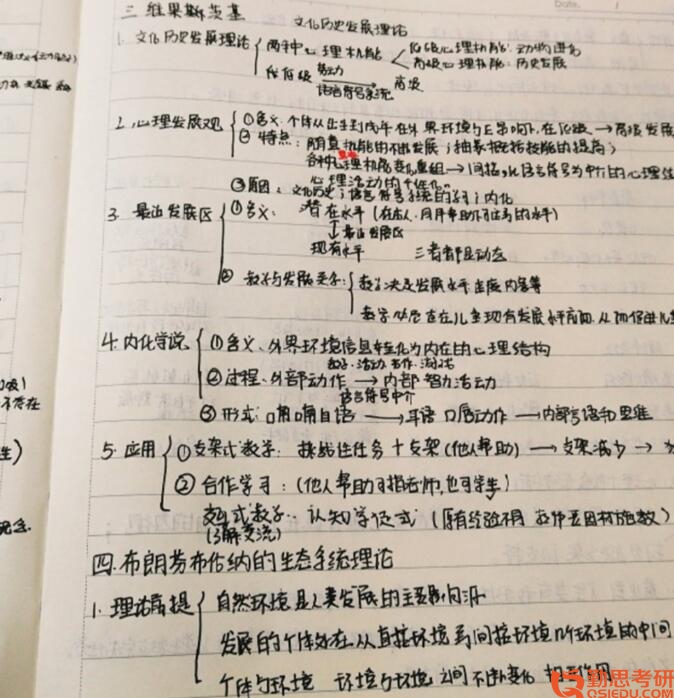 Date.
三 维果斯茨基 文化历史发展理论
1. 文化历史发展理论 两种心理机能 低级心理机能：动物进化
高级心理机能：历史发展
从低级 劳动 语言符号系统 高级
2. 心理发展观 ①含义：个体从出生到成年在外界环境与 影响下，在低级→高级发展
②特点：随意机能的不断发展；抽象概括技能的提高；
各种心理机能变化重组→间接，以语言符号为中介的心理
心理活动的个性化。
③原因：文化历史；语言符号系统的学习；内化
3. 最近发展区 ①含义： 潜在水平（在他人，同伴帮助下可达到的水平）
↓最近发展区
现有水平 三者都是动态
②教学与发展关系：教学决定发展水平 速度内容等
教学 在儿童现有发展水平前面，从而促进儿童
4. 内化学说 ①含义、外界环境信息转化为内在的心理结构
教学、活动、合作、
②过程、外部动作→内部智力活动
语言符号中介
③形式：喃喃自语→耳语 口唇动作→内部言语和思维
5. 应用 ①支架式教学：挑战性任务＋支架（他人帮助）→支架减少→
②合作学习：（他人帮助可指老师，也可学生）
交互式教学、认知学徒式（原有经验不同 因材施教）
（了解交流）
四. 布朗芬布伦纳的生态系统理论
1. 理论前提 自然环境是人类发展的主要影响源
发展的个体处在从直接环境到间接环境几个环境的中间
个体与环境 环境与环境 之间不断变化 相互作用
勤思考研
QSIEDU.COM